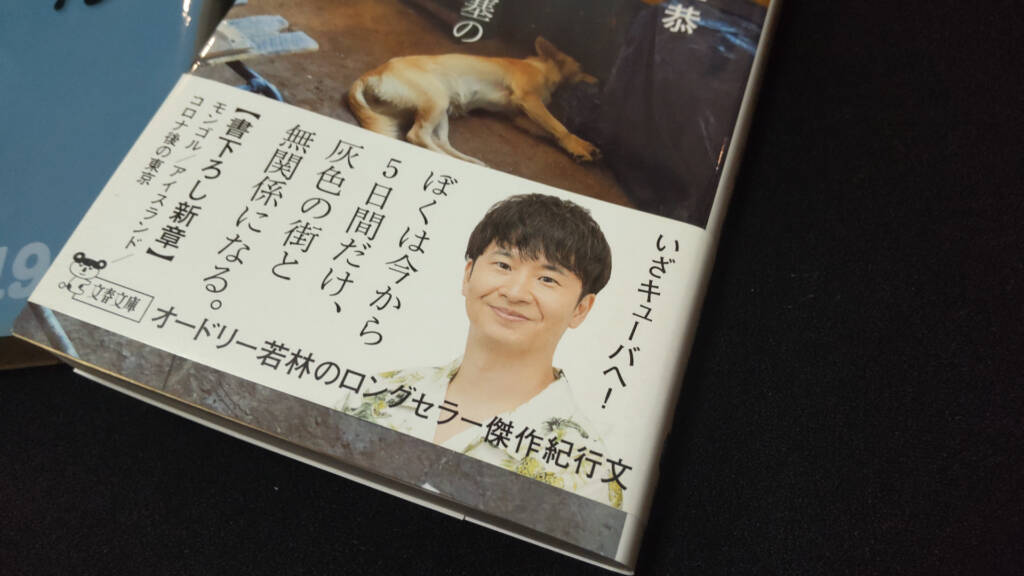 恭
の
いざキューバへ!
ぼくは今から
5日間だけ、
灰色の街と
無関係になる。
【書下ろし新章】
モンゴル/アイスランド/
コロナ後の東京
文春文庫
オードリー若林のロングセラー傑作紀行文
19